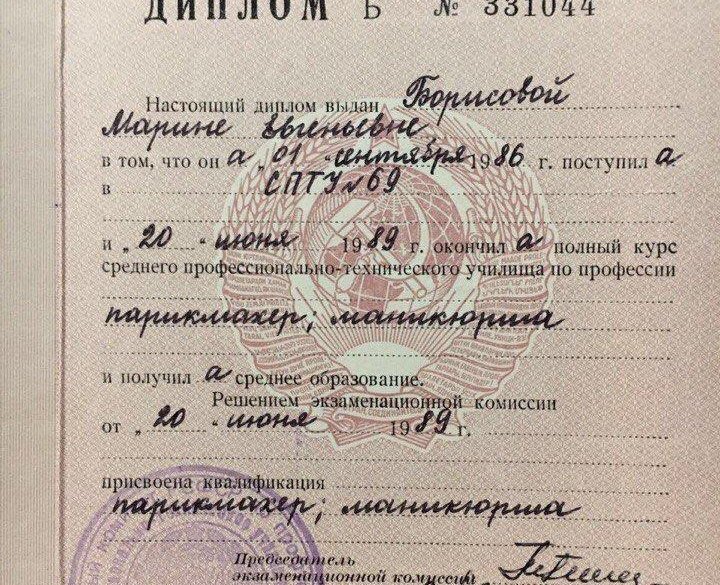 ДИПЛОМ Б № 331044
Настоящий диплом выдан Борисовой
Марине Евгеньевне
в том, что он а „ 01 " сентября 1986 г. поступил а
в СПТУ № 69
и „ 20 " июня 1989 г. окончил а полный курс
среднего профессионально-технического училища по профессии
парикмахер; маникюрша
и получил а среднее образование.
Решением экзаменационной комиссии
от „ 20 " июня 1989 г.
присвоена квалификация
парикмахер; маникюрша
Председатель
экзаменационной комиссии